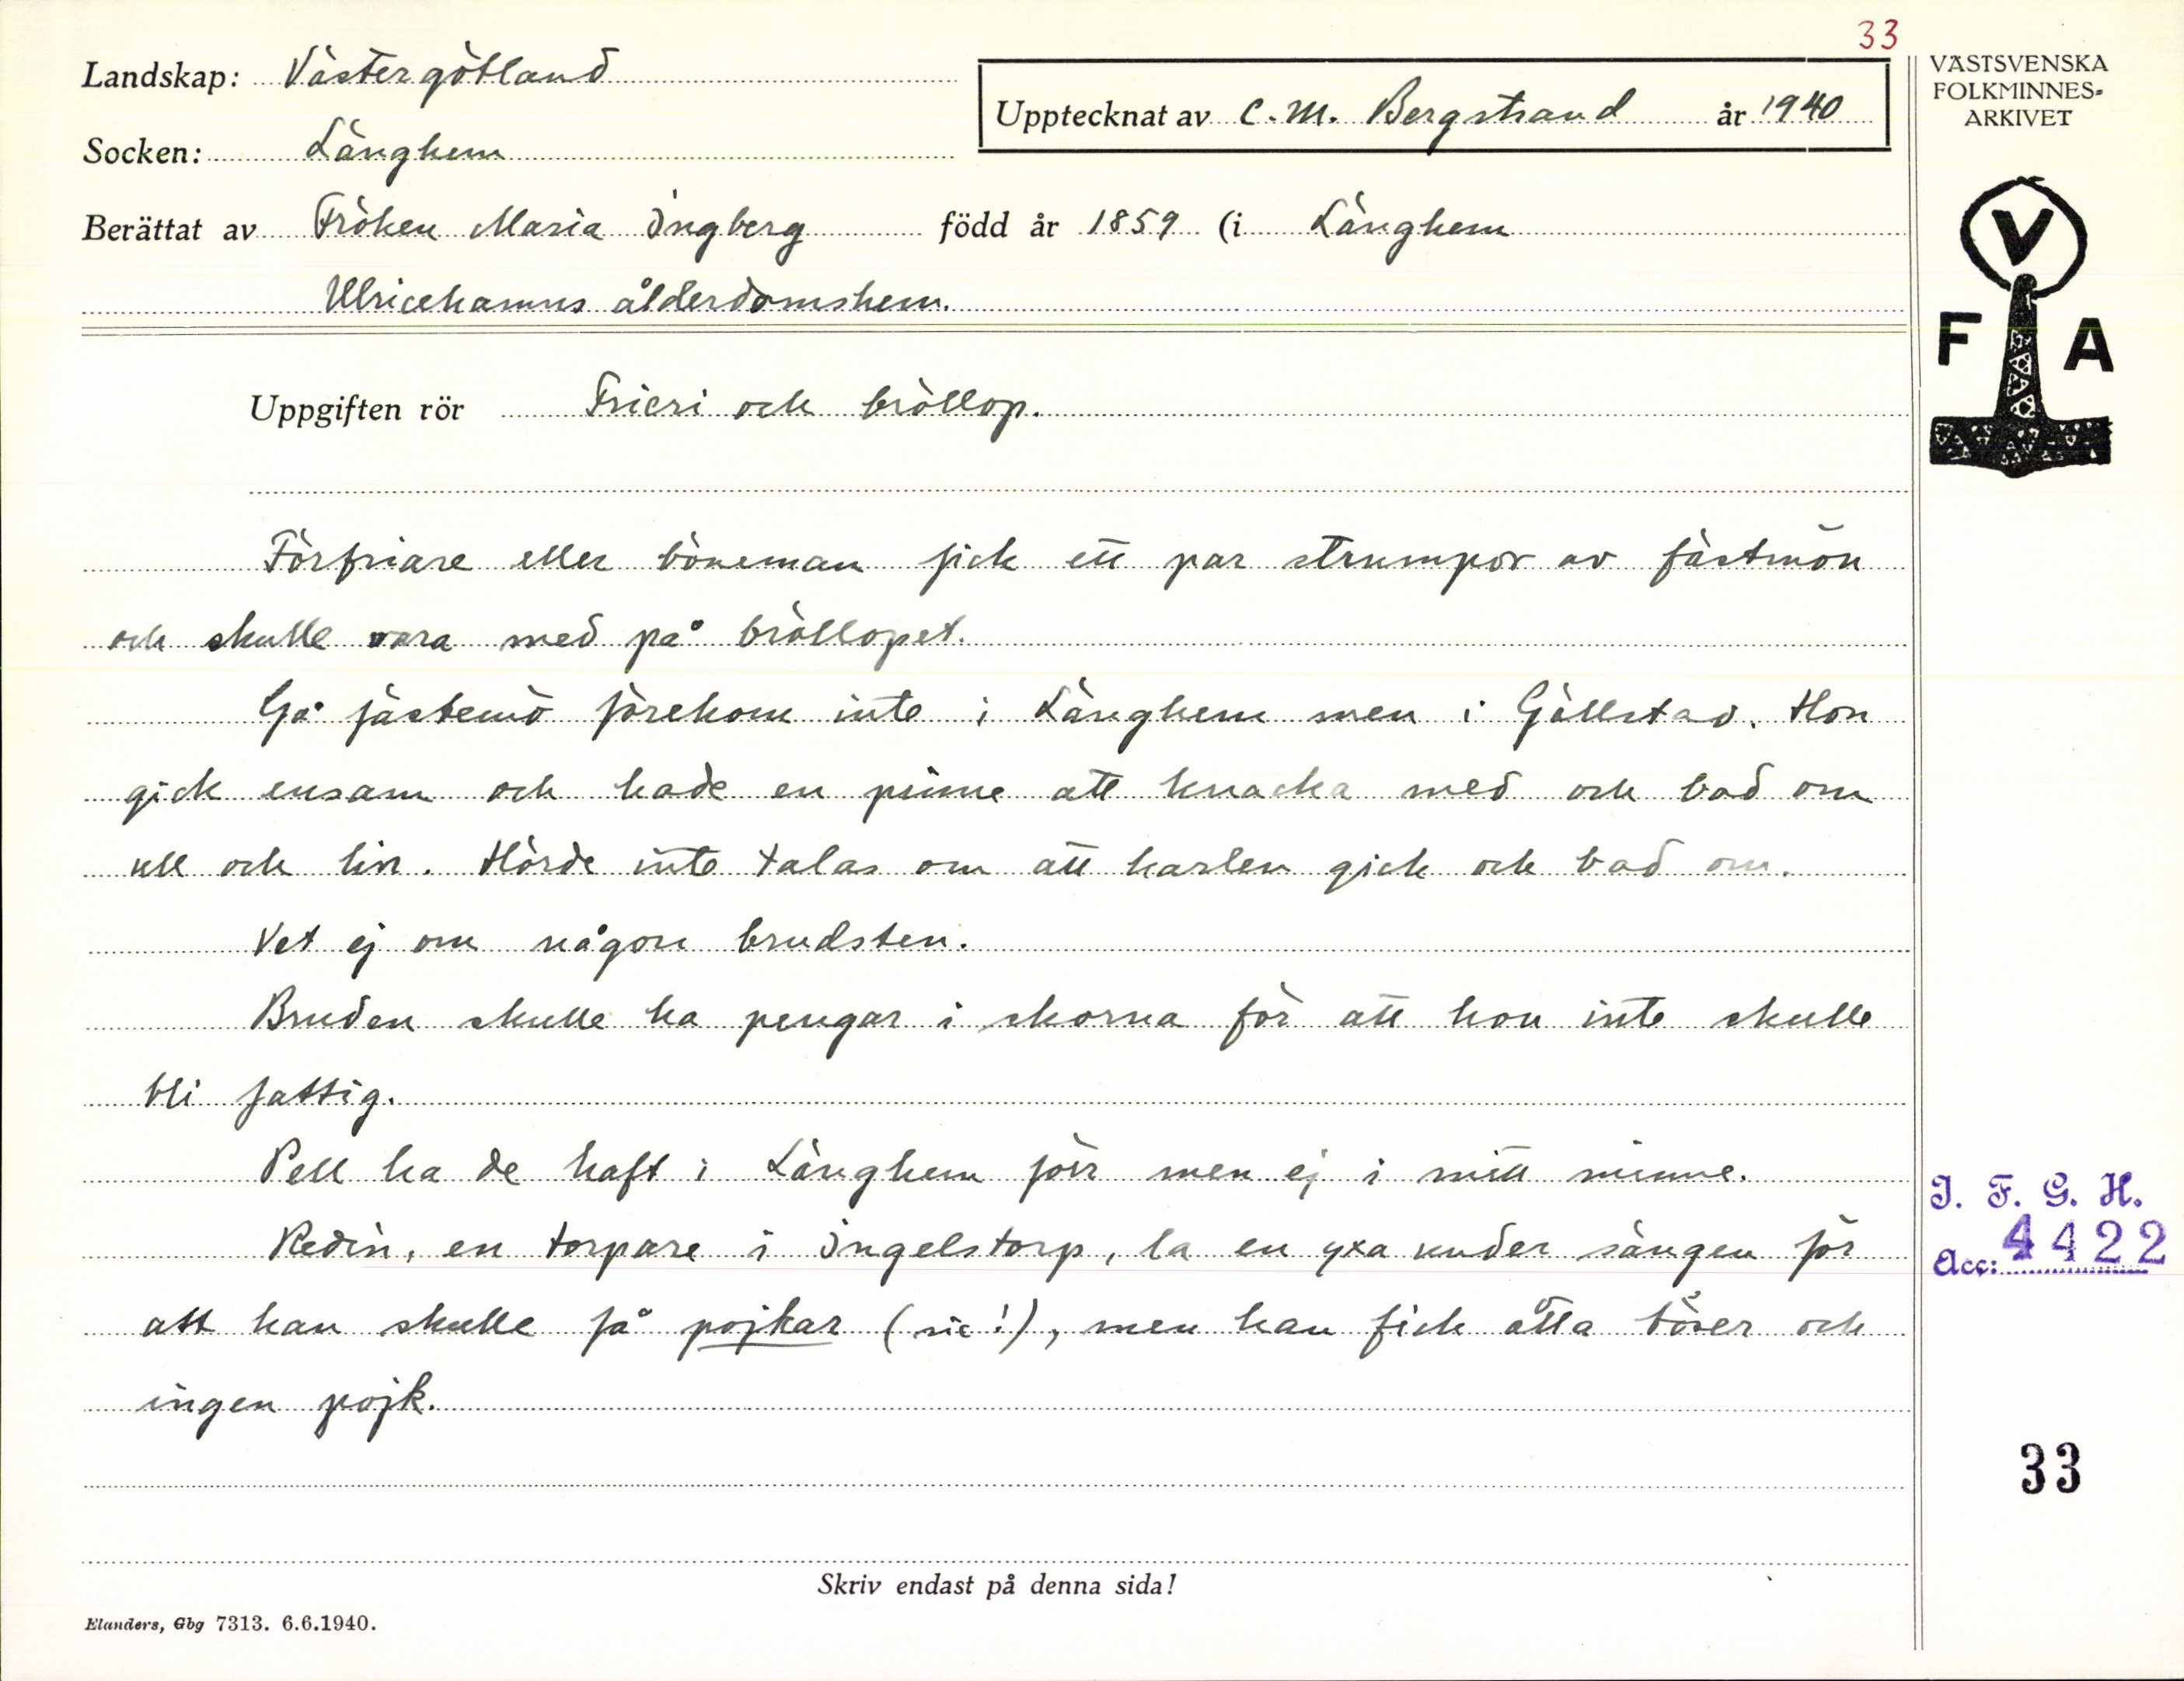 33
Landskap: Västergötland
Upptecknat av C. M. Bergstrand år 1940
Socken: Länghem
Berättat av Fröken Maria Ingberg född år 1859 (i Länghem
Ulricehamns ålderdomshem.
VÄSTSVENSKA
FOLKMINNES-
ARKIVET
V
F A
Uppgiften rör Frieri och bröllop.
Förfriare eller böneman fick ett par strumpor av fästmön
och skulle vara med på bröllopet.
Gå fästemö förekom inte i Länghem men i Gällstad. Hon
gick ensam och hade en pinne att knacka med och bad om
ull och lin. Hörde inte talas om att karlen gick och bad om.
Vet ej om någon brudsten.
Bruden skulle ha pengar i skorna för att hon inte skulle
bli fattig.
Pell ha de haft i Länghem förr men ej i mitt minne.
Redin, en torpare i Ingelstorp, la en yxa under sängen för
att han skulle få pojkar (sic!), men han fick åtta töser och
ingen pojk.
I. F. G. H.
Acc: 4422
33
Skriv endast på denna sida!
Elanders, Gbg 7313. 6.6.1940.